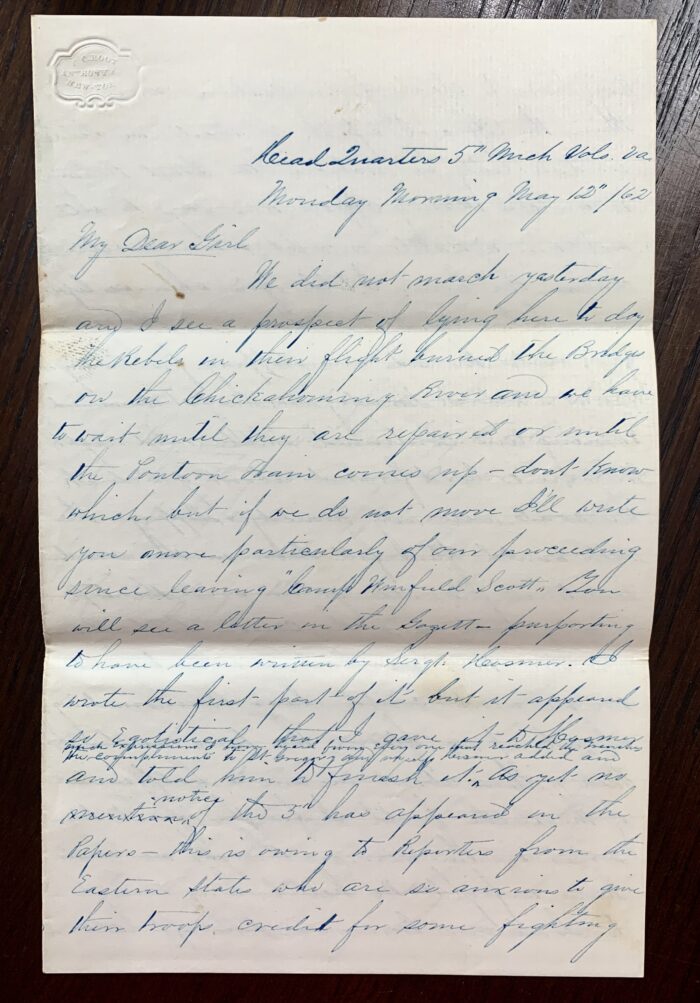 Head Quarters 5" Mich Vols. Va
Monday Morning May 12"/62
My Dear Girl
We did not march yesterday
and I see a prospect of lying here to day
the Rebels in their flight burned the Bridges
on the Chickahominy River and we have
to wait until they are repaired or until
the Pontoon Train comes up - dont know
which, but if we do not move I'll write
you more particularly of our proceeding
since leaving "Camp Winfield Scott" You
will see a letter in the Gazett - purporting
to have been written by Sergt Hosmer. I
wrote the first part of it but it appeared
so Egotistical that I gave it to Hosmer
the compliments to and myself Hosmer added and
and told him to finish it. As yet no
notice
mention of the 5" has appeared in the
Papers - this is owing to Reporters from the
Eastern States who are so anxious to give
their troops credit for some fighting